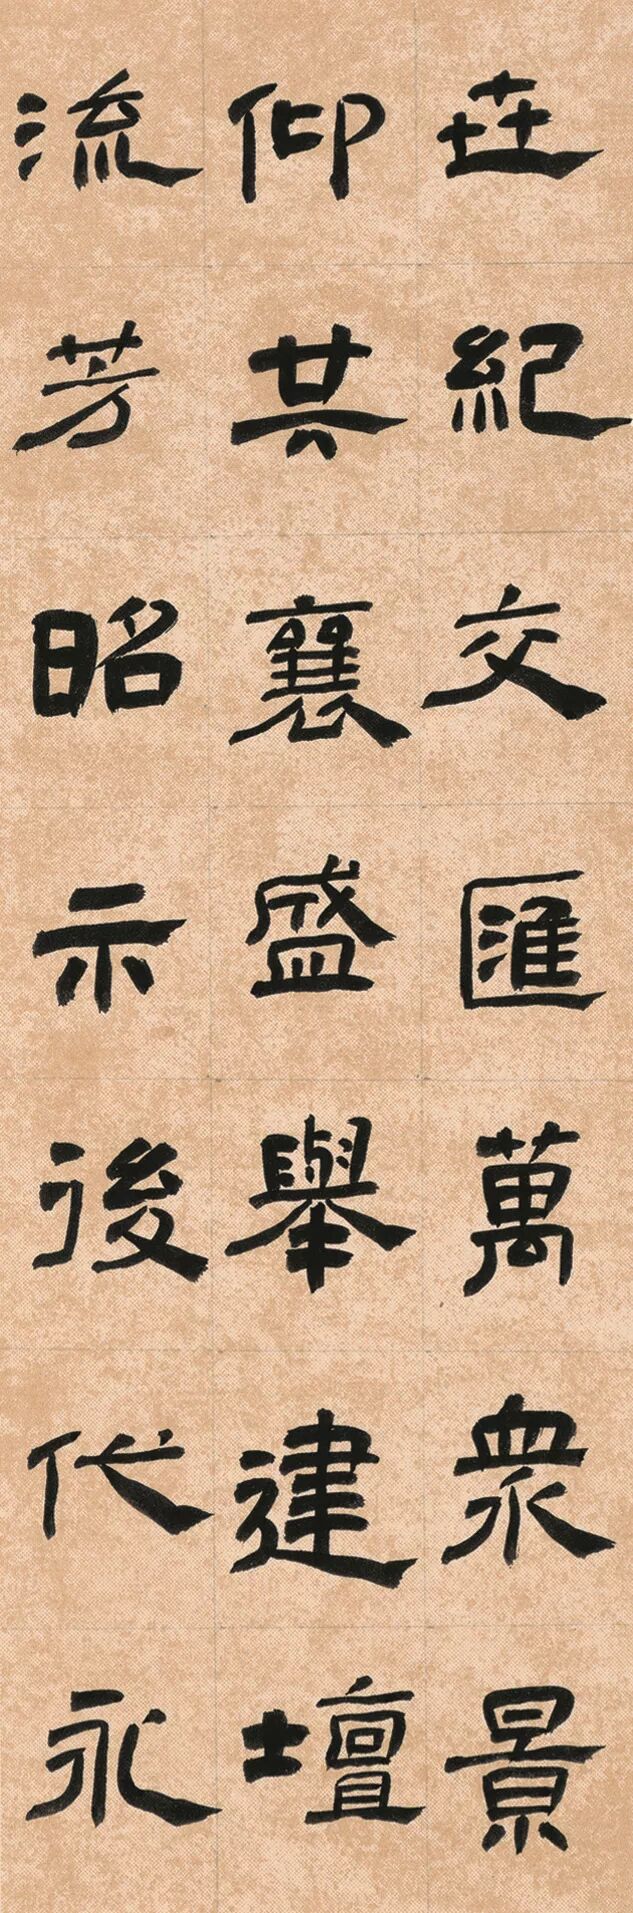 世紀交匯萬衆景
仰共襄盛舉建壇
流芳昭示後代永